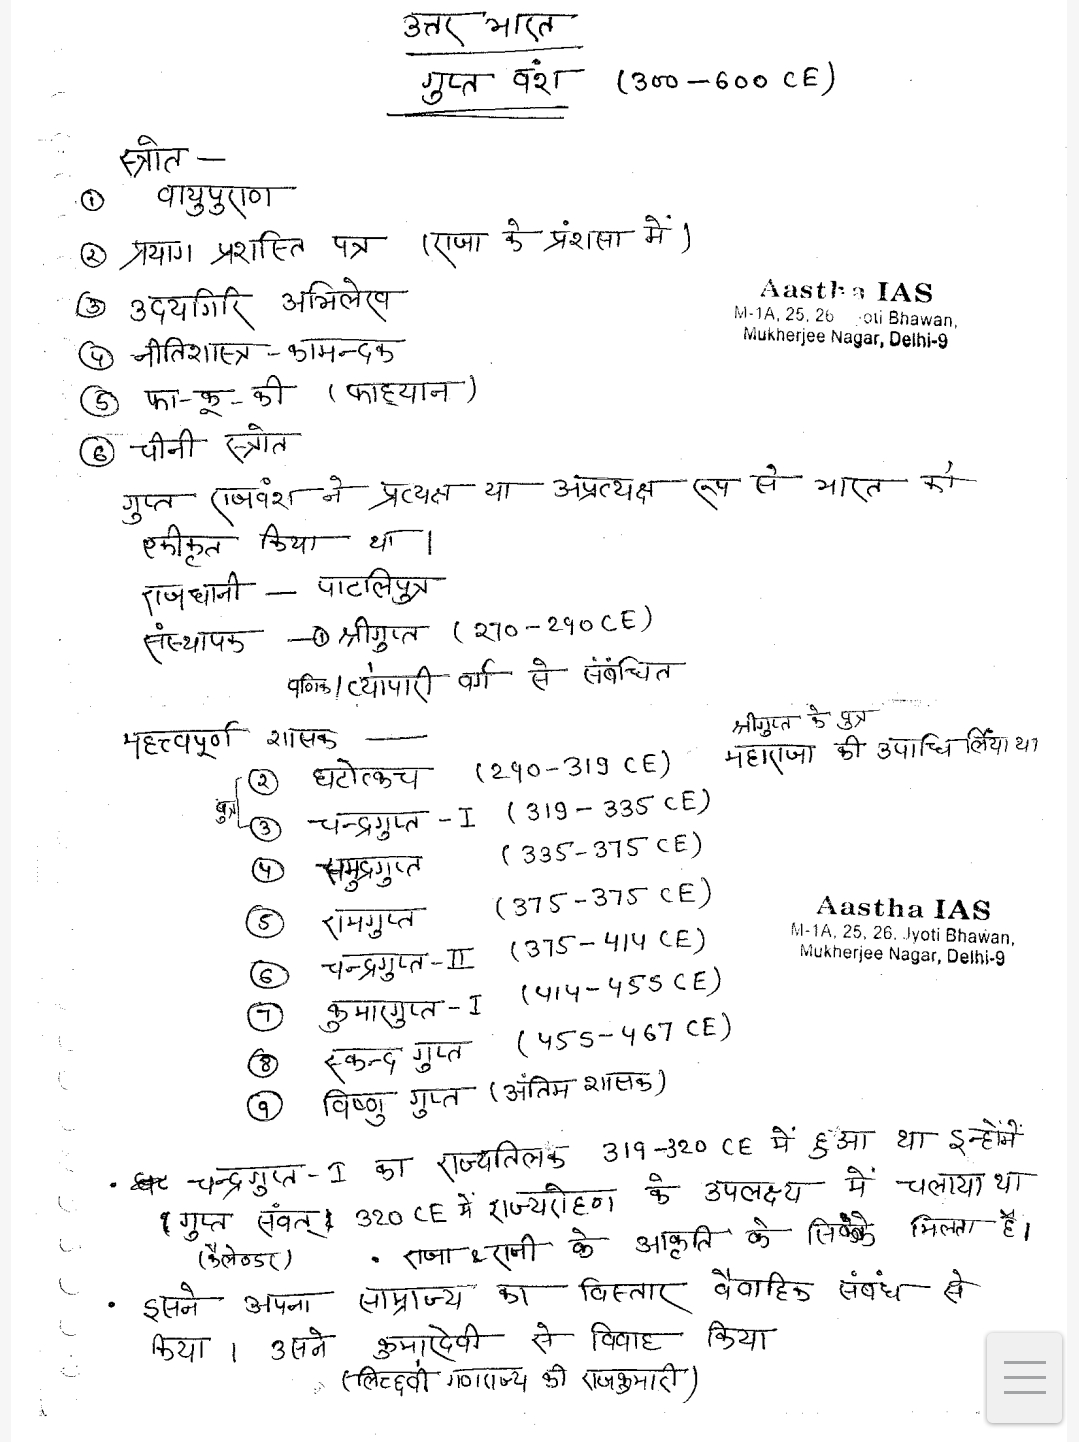 उत्तर भारत
गुप्त वंश (300-600 CE)
स्त्रोत –
① वायुपुराण
② प्रयाग प्रशस्ति पत्र (राजा के प्रंशसा में)
③ उदयगिरि अभिलेख
④ नीतिशास्त्र - कामन्दक
⑤ फा-कू-की (फाह्यान)
⑥ चीनी स्त्रोत
Aastha IAS
M-1A, 25, 26 Jyoti Bhawan,
Mukherjee Nagar, Delhi-9
गुप्त राजवंश ने प्रत्यक्ष या अप्रत्यक्ष रूप से भारत को
एकीकृत किया था।
राजधानी – पाटलिपुत्र
संस्थापक –① श्रीगुप्त (270-290 CE)
वणिक/व्यापारी वर्ग से संबंधित
महत्त्वपूर्ण शासक —
श्रीगुप्त के पुत्र
महाराजा की उपाधि लिया था
② घटोत्कच (290-319 CE)
पुत्र
③ चन्द्रगुप्त - I (319-335 CE)
④ समुद्रगुप्त (335-375 CE)
⑤ रामगुप्त (375-375 CE)
⑥ चन्द्रगुप्त-II (375-414 CE)
⑦ कुमारगुप्त-I (414-455 CE)
⑧ स्कन्द गुप्त (455-467 CE)
⑨ विष्णु गुप्त (अंतिम शासक)
Aastha IAS
M-1A, 25, 26. Jyoti Bhawan,
Mukherjee Nagar, Delhi-9
• चन्द्रगुप्त-I का राज्यतिलक 319-320 CE में हुआ था इन्होंने
गुप्त संवत् 320 CE में राज्यरोहण के उपलक्ष्य में चलाया था
(कैलेण्डर) • राजा & रानी के आकृति के सिक्के मिलता है।
• इसने अपना साम्राज्य का विस्तार वैवाहिक संबंध से
किया। उसने कुमारदेवी से विवाह किया
(लिच्छवी गणराज्य की राजकुमारी)